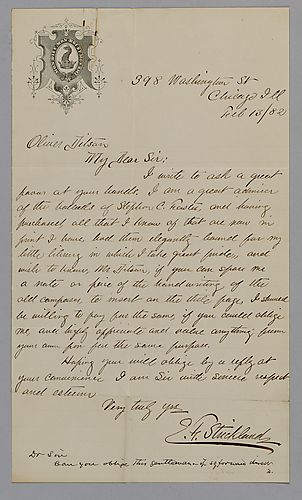 398 Washington St
Chicago Ill
Feb 13/82
Oliver Ditson
My Dear Sir:
I write to ask a great
favor at your hands. I am a great admirer
of the ballads of Stephen C. Foster, and having
purchased all that I know of that are now in
print I have had them elegantly bound for my
little library in which I take great pride, and
wish to know, Mr Ditson, if you can spare me
a note or piece of the handwriting of the
old composer to insert on the title page. I should
be willing to pay for the same, if you could oblige
me and highly appreciate and value anything from
your own pen for the same purpose.
Hoping you will oblige by a reply at
your convenience I am Sir with sincere respect
and esteem
Very truly yrs
E. F. Strickland
Dr Sir
Can you oblige this gentleman & forward direct